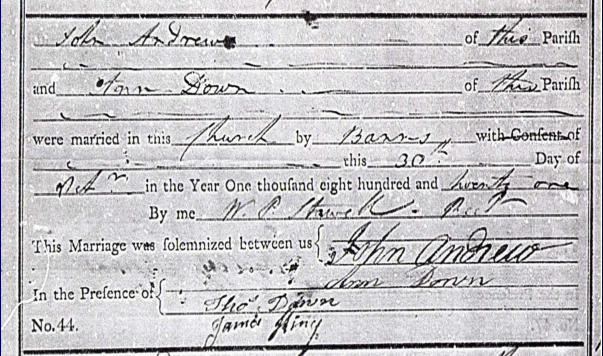 John Andrew of this Parish
and Ann Down of this Parish
were married in this Church by Banns with Consent of
this 30th Day of
Octr in the Year One thousand eight hundred and twenty one
By me W. P. Stawell. Rect
This Marriage was solemnized between us { John Andrew
Ann Down
In the Presence of { Thos Down
James King
No. 44.